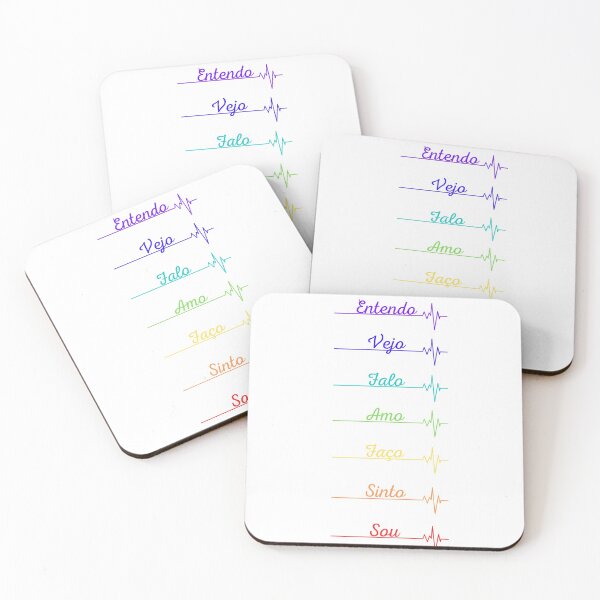 Entendo
Vejo
Falo
Entendo
Vejo
Falo
Amo
Faço
Entendo
Vejo
Falo
Amo
Faço
Sinto
So
Entendo
Vejo
Falo
Amo
Faço
Sinto
Sou